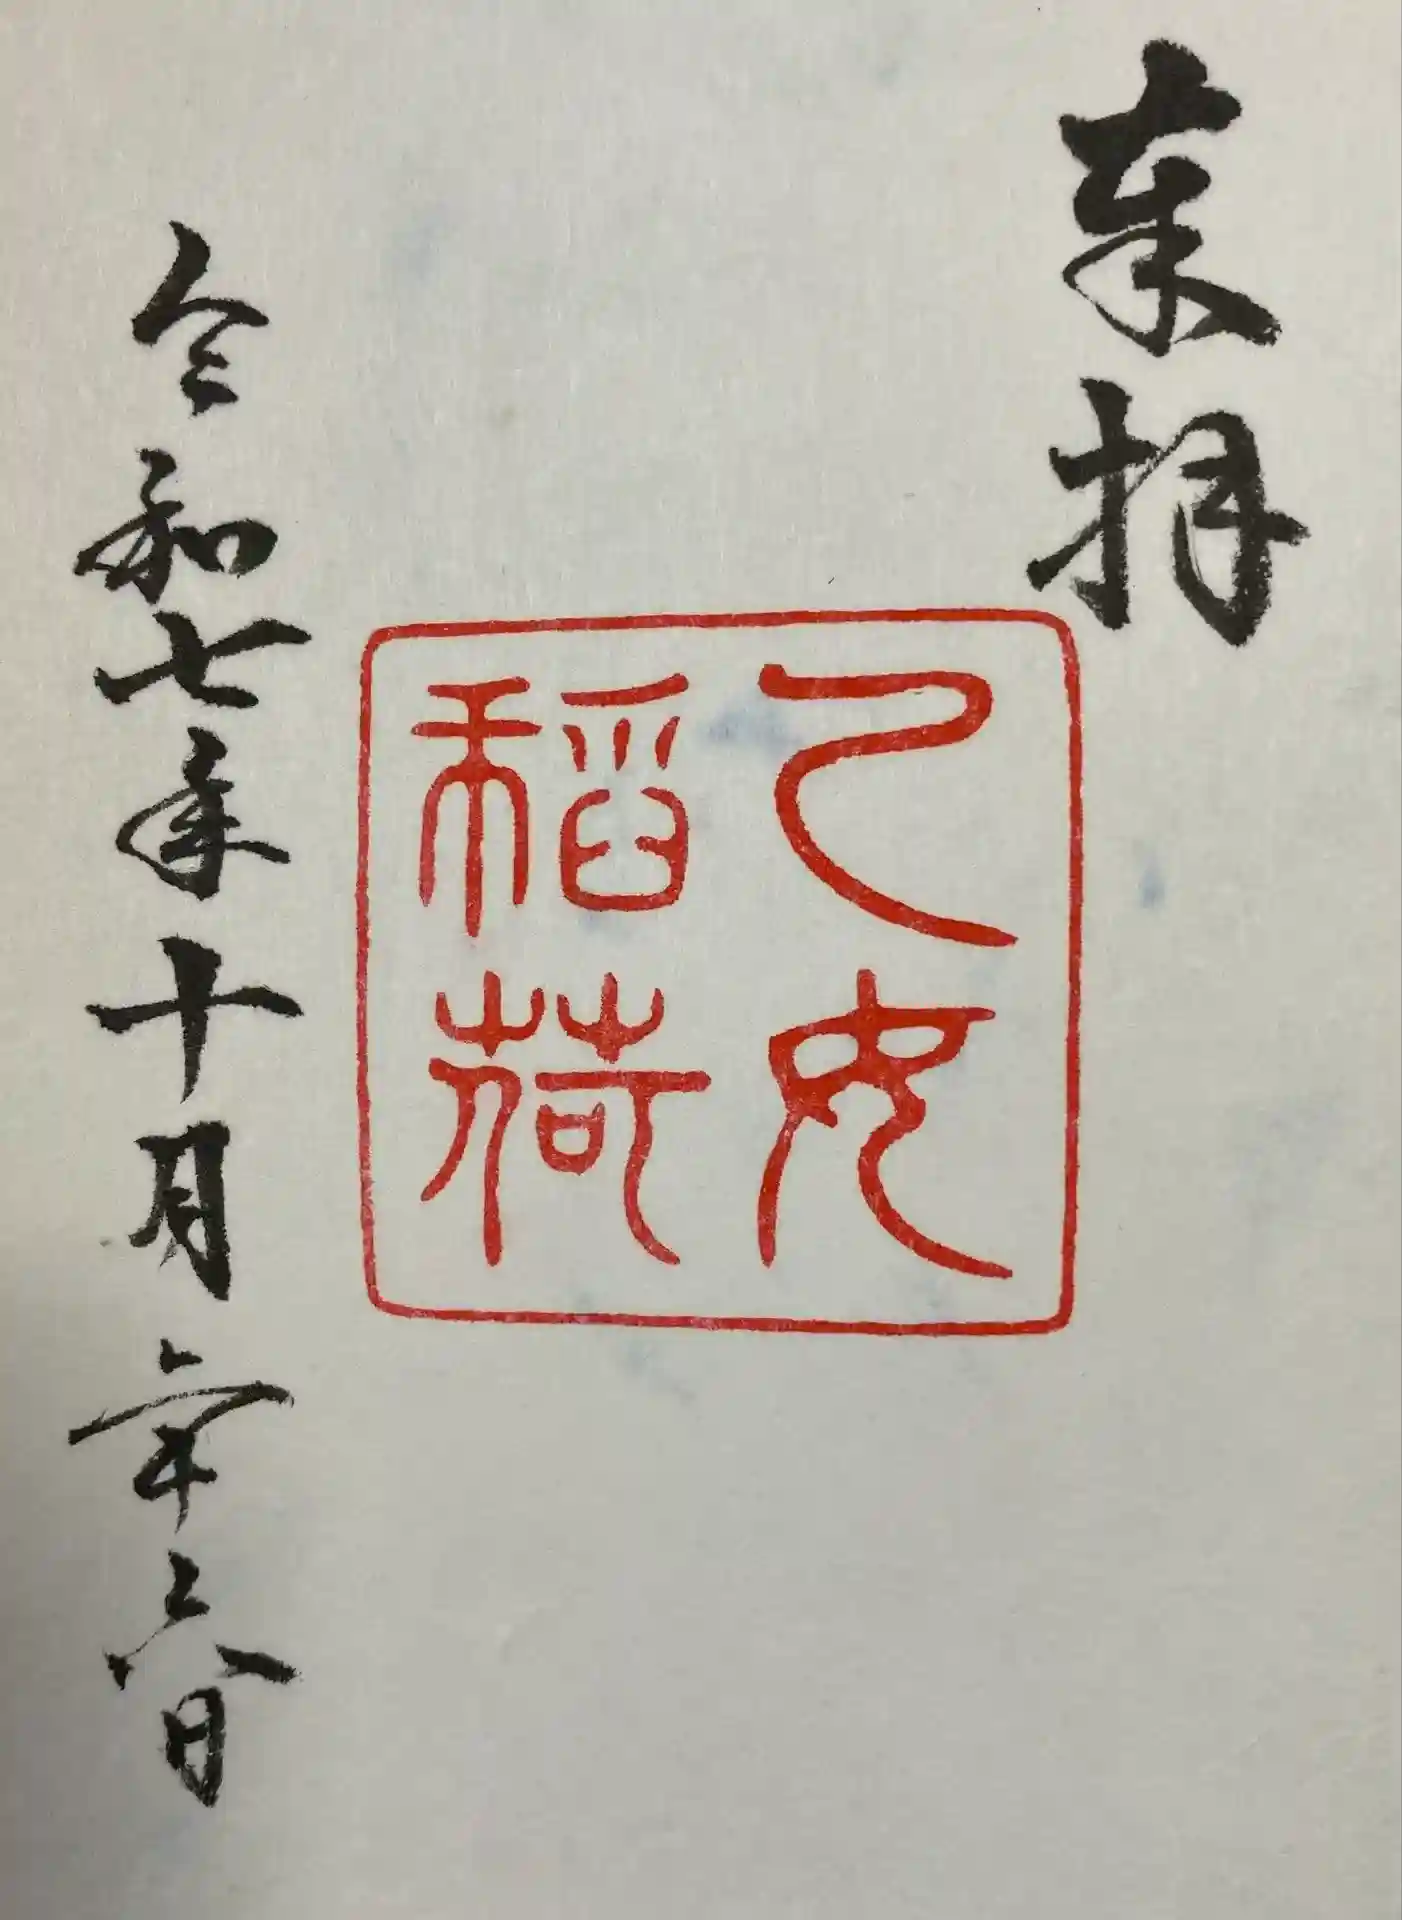 奉拝
乙女
稲荷
令和七年十月二十六日